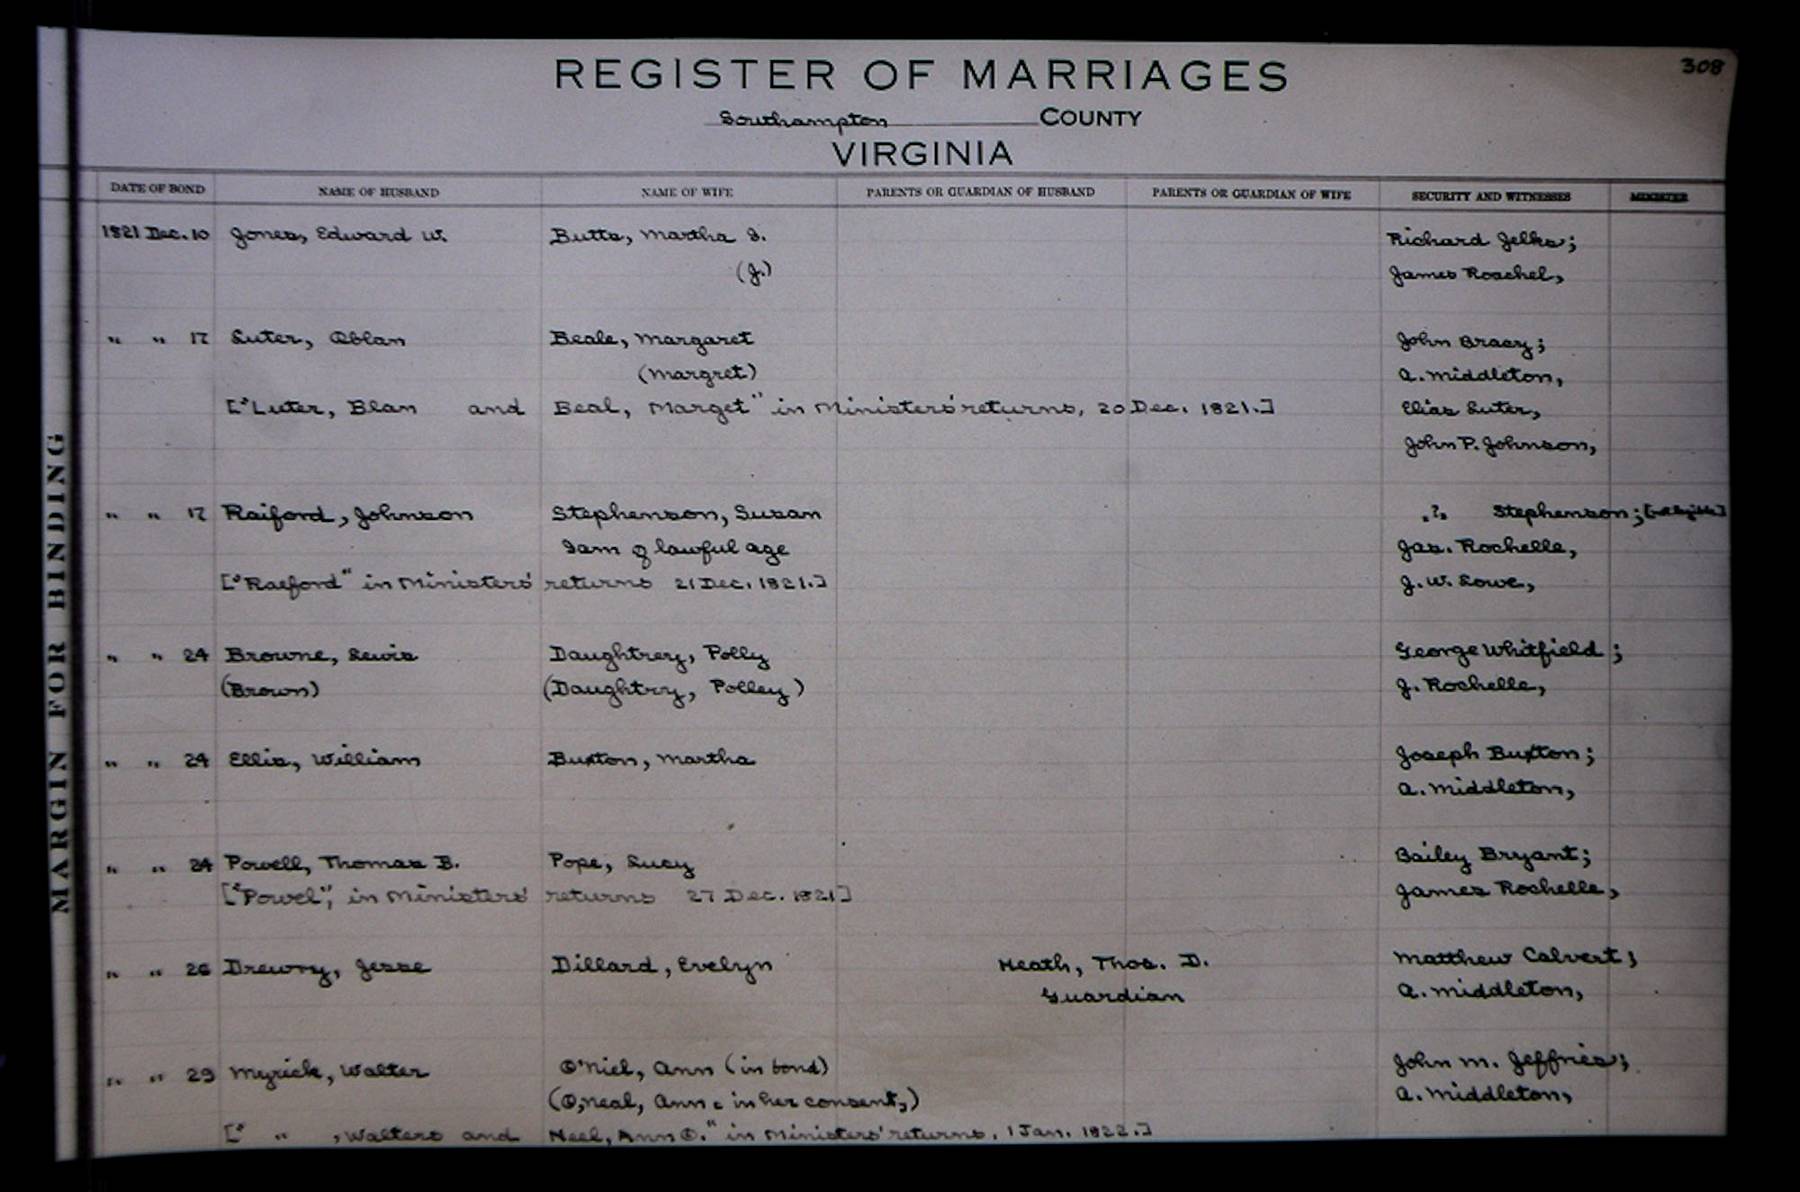 308
REGISTER OF MARRIAGES
Southampton COUNTY
VIRGINIA
DATE OF BOND NAME OF HUSBAND NAME OF WIFE PARENTS OR GUARDIAN OF HUSBAND PARENTS OR GUARDIAN OF WIFE SECURITY AND WITNESSES MINISTER
1821 Dec. 10 Jones, Edward W. Butts, Martha I. Richard Jelks;
(J.) James Roachel,
" " 17 Luter, Oblan Beale, Margaret John Bracy;
(Margret) A. Middleton,
["Luter, Blan and Beal, Marget" in Ministers' returns, 20 Dec. 1821.] Elias Luter,
John P. Johnson,
" " 17 Raiford, Johnson Stephenson, Susan "?" Stephenson;
I am of lawful age Jas. Rochelle,
["Raeford" in Ministers' returns 21 Dec. 1821.] J. W. Lowe,
" " 24 Browne, Lewis Daughtrey, Polly George Whitfield;
(Brown) (Daughtry, Polley) J. Rochelle,
" " 24 Ellis, William Buxton, Martha Joseph Buxton;
A. Middleton,
" " 24 Powell, Thomas B. Pope, Lucy Bailey Bryant;
["Powel", in Ministers' returns 27 Dec. 1821] James Rochelle,
" " 26 Drewry, Jesse Dillard, Evelyn Heath, Thos. D. Matthew Calvert;
Guardian A. Middleton,
" " 29 Myrick, Walter O'Niel, Ann (in bond) John M. Jeffries;
(O,neal, Ann in her consent,) A. Middleton,
[" " , Walters and Neel, Ann O." in Ministers' returns, 1 Jan. 1822.]
MARGIN FOR BINDING